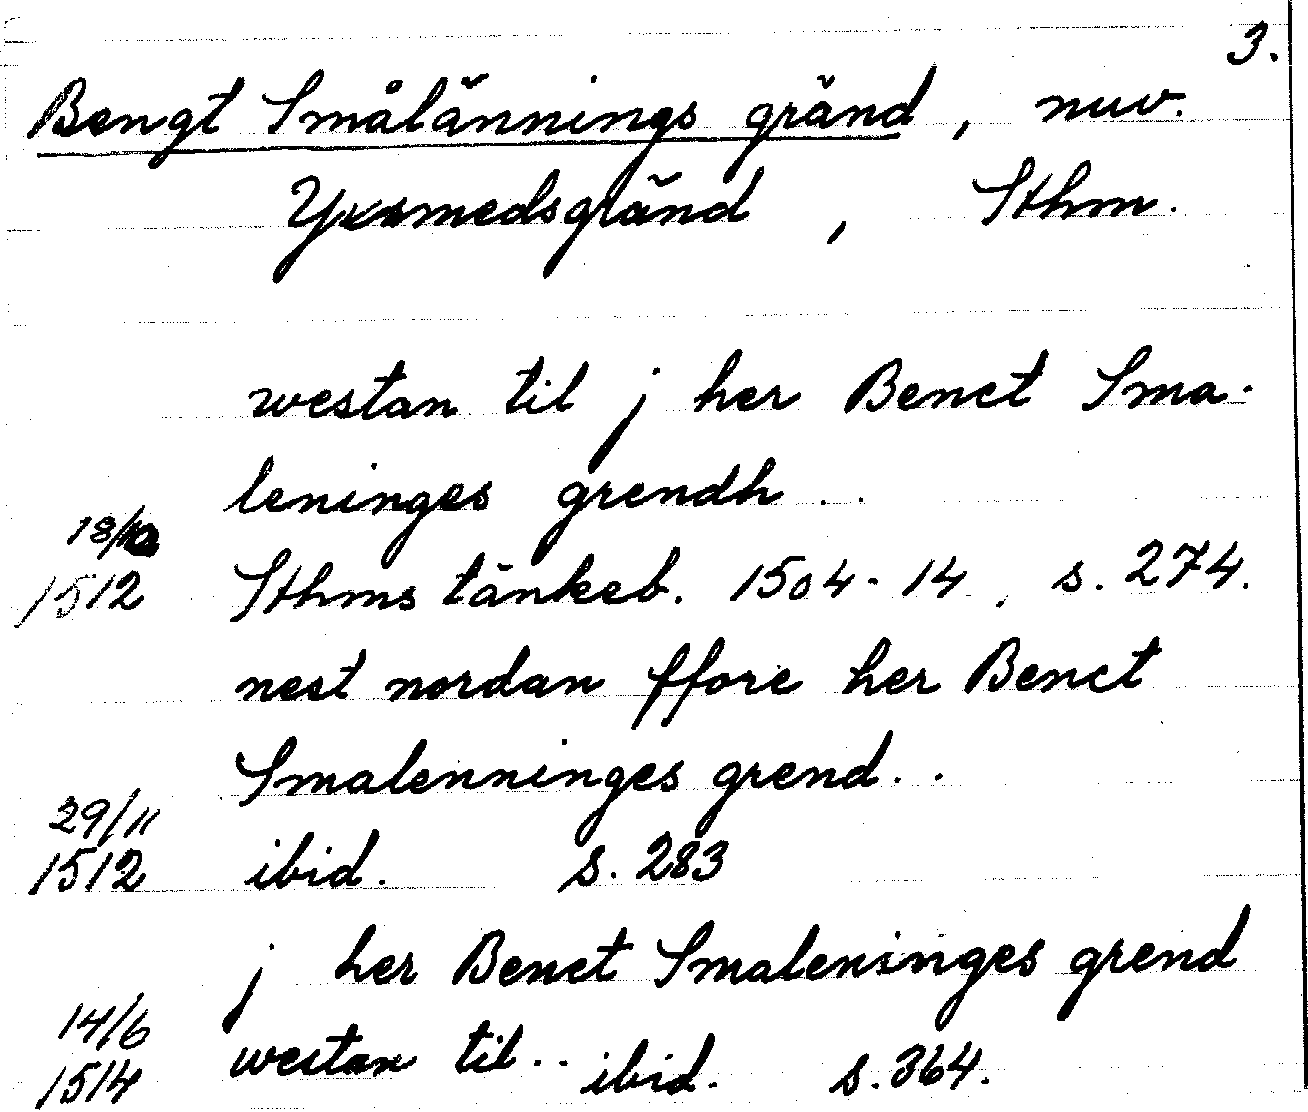 3.
Bengt Smålännings gränd, nuv.
Yxsmedsgränd, Sthm.
westan til j her Benct Sma-
leninges grendh ..
18/10
1512 Sthms tänkeb. 1504-14, s. 274.
nest nordan ffore her Benct
Smalenninges grend..
29/11
1512 ibid. s. 283
j her Benct Smaleninges grend
14/6
1514 westan til.. ibid. s. 364.